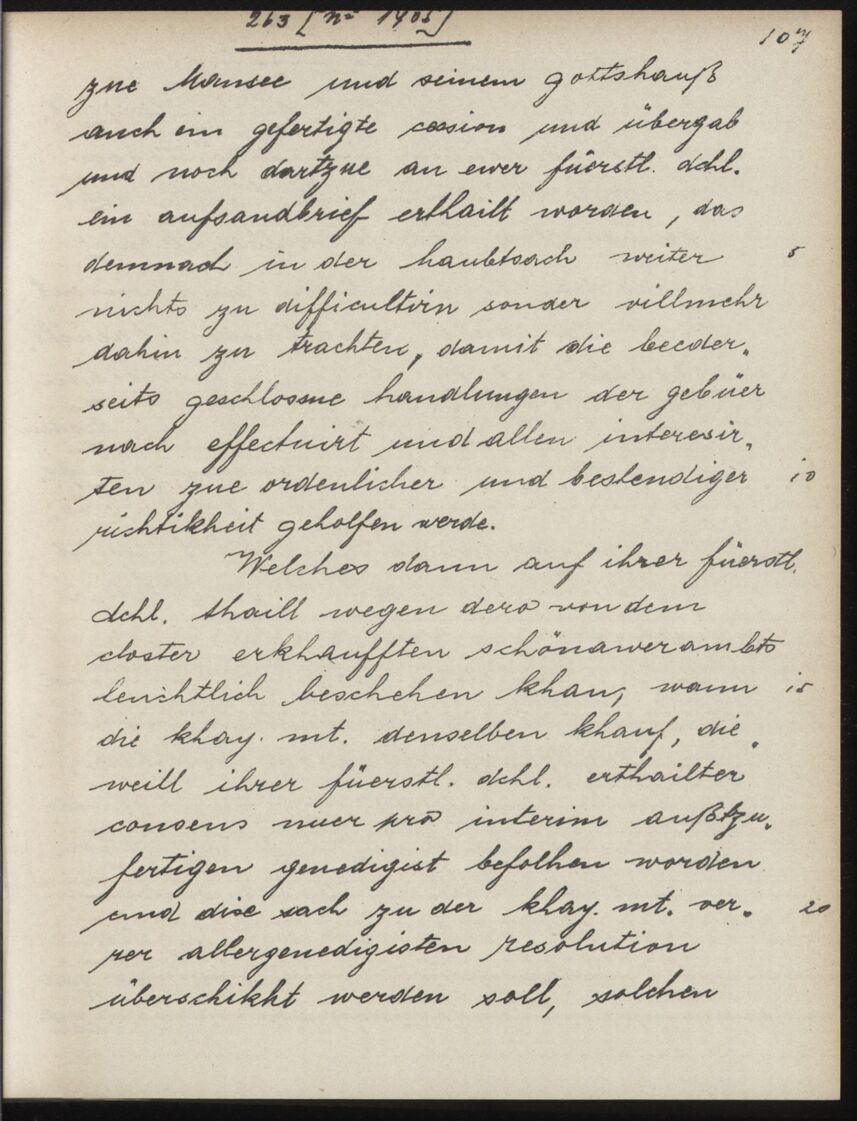 263 [Nº 1405]
107
zue Mansee und seinem gottshauß
auch ein gefertigte cession und übergab
und noch dartzue an ewer füerstl. dchl.
ein aufsandbrief erthailt worden, das
demnach in der haubtsach weiter 5
nichts zu difficultirn sonder villmehr
dahin zu trachten, damit die beeder„
seits geschlossne handlungen der gebüer
nach effectuirt und allen interesir„
ten zue ordenlicher und bestendiger 10
richtikheit geholfen werde.
Welches dann auf ihrer füerstl.
dchl. thaill wegen dero von dem
closter erkhaufften schönawerambts
leuchtlich beschehen khan, wann 15
die khay. mt. denselben khauf, die„
weill ihrer füerstl. dchl. erthailter
consens nuer pro interim außtzu„
fertigen genedigist befolhen worden
und dise sach zu der khay. mt. ver„ 20
rer allergenedigisten resolution
überschikht werden soll, solchen